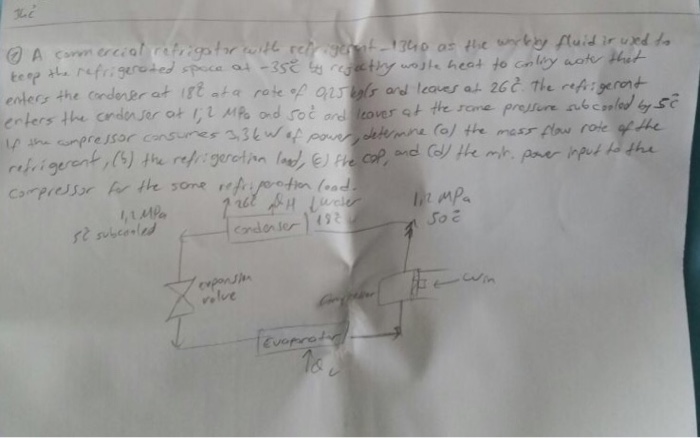 A commercial refrigator with refrigerent-134a as the working fluid is used to
keep the refrigerated space at -35c by rejecting waste heat to cooling water that
enters the condenser at 18c at a rate of 0,25 kg/s and leaves at 26c. The refrigerant
enters the condenser at 1,2 MPa and 50c and leaves at the same pressure subcooled by 5c
If the compressor consumes 3,3 kW of power, determine (a) the mass flow rate of the
refrigerant, (b) the refrigeration load, (c) the COP, and (d) the min. power input to the
compressor for the same refrigeration load.
26c QH water
1,2 MPa condenser 18c 1,2 MPa
5c subcooled 50c
expansion
valve
Compressor Win
Evaporator
QL